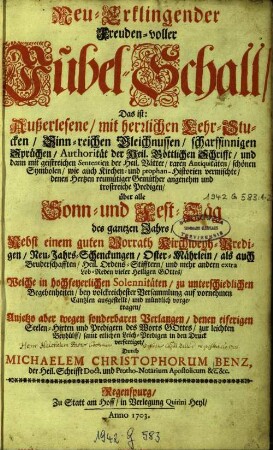 Neu-Erklingender
Freuden-voller
Jubel-Schall/
Das ist:
Außerlesene/ mit herzlichen Lehr-Stu-
cken/ Sinn-reichen Gleichnussen/ scharfsinnigen
Sprüchen/ Authorität der Heil. Göttlichen Schrifft/ und
dann mit geistreichen Sententien der Heil. Vätter/ raren Antiquitäten/ schönen
Symbolen/ wie auch Kirchen- und prophan-Historien vermischte/
denen Hertzen reumütiger Gemüther angenehm und
trostreiche Predigen/
über alle
Sonn- und Fest-Täg
des gantzen Jahrs/
1942 G 583.1-2
Nebst einem guten Vorrath Kirchweyh-Predi-
gen/ Neu-Jahrs-Schenckungen/ Oster-Mährlein/ als auch
Bruderschafften/ Heil. Ordens-Stifftern/ und mehr andern extra
Lob-Reden vieler Heiligen GOttes/
Welche in hochfeyerlichen Solennitäten/ zu unterschiedlichen
Begebenheiten/ bey volckreichester Versammlung auf vornehmen
Cantzlen ausgestellt/ und mündlich vorge-
tragen/
Anjetzo aber wegen sonderbaren Verlangen/ denen eiferigen
Seelen-Hirten und Predigern des Worts GOttes/ zur leichten
Beyhülff/ samt etlichen Leich-Predigen in den Druck
verfertiget/
Durch
MICHAELEM CHRISTOPHORUM BENZ,
der Heil. Schrifft Doct. und Protho-Notarium Apostolicum &c. &c.
Regenspurg/
Zu Statt am Hoff/ in Verlegung Quirini Heyl/
Anno 1703.
1942 G 583